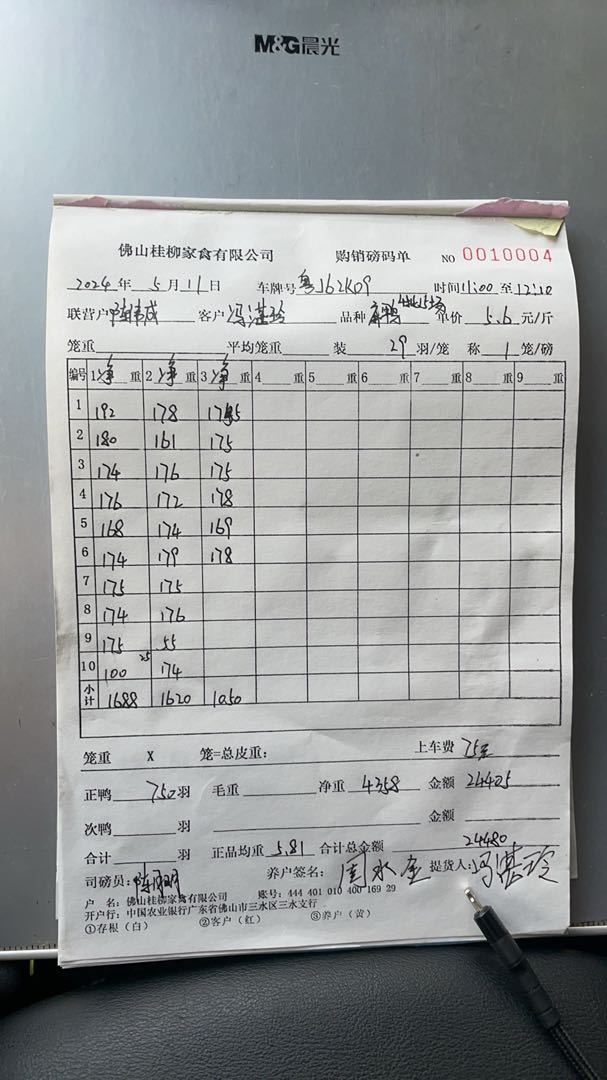 M&G晨光
佛山桂柳家禽有限公司 购销磅码单 NO 0010004
2024年 5月11日 车牌号 粤J62K09 时间11:00至12:10
联营户 客户 冯湛玲 品种 麻鸭 单价 5.6 元/斤
笼重 平均笼重 装 29 羽/笼 称 1 笼/磅
编号 1净重 2净重 3净重 4重 5重 6重 7重 8重 9重
1 192 178
2 180 161 175
3 174 176 175
4 176 172 178
5 168 174 169
6 174 179 178
7 175 175
8 174 176
9 175 55
10 100 25 174
小计 1688 1620 1050
笼重 X 笼=总皮重: 上车费 75元
正鸭 750羽 毛重 净重 4358 金额 24405
次鸭 羽 金额
合计 羽 正品均重 5.81 合计总金额 24480
司磅员: 养户签名: 周水全 提货人: 冯湛玲
户 名: 佛山桂柳家禽有限公司 账号: 444 401 010 400 169 29
开户行: 中国农业银行广东省佛山市三水区三水支行
①存根(白) ②客户(红) ③养户(黄)